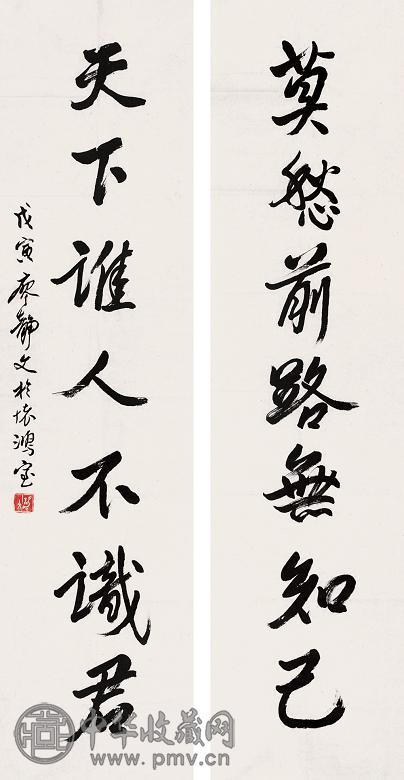 莫愁前路無知己
天下誰人不識君
戊寅廖靜文於懷鴻室
中华收藏网
www.pmv.cn